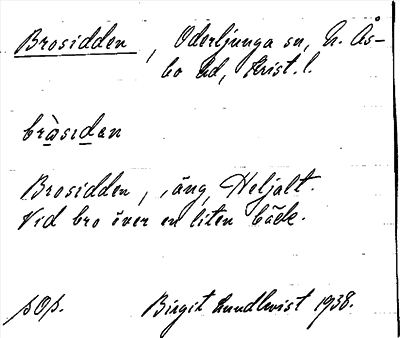 Brosidden, Oderljunga sn, N. Ås-
bo hd, Krist. l.
bròsidən
Brosidden, äng, Heljalt.
Vid bro över en liten bäck.
pOp. Birgit Lundkvist 1938.